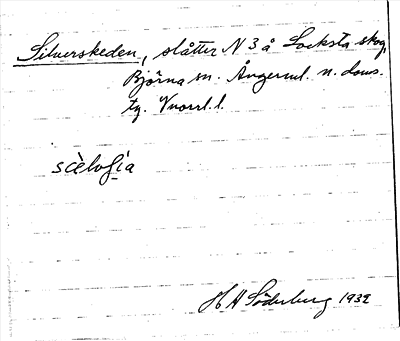 Silverskeden, slåtter N 3 å Locksta skog,
Björna sn. Ångerml. n. doms.
tg. Vnorrl. l.
sèlvofía
H A Söderberg 1932